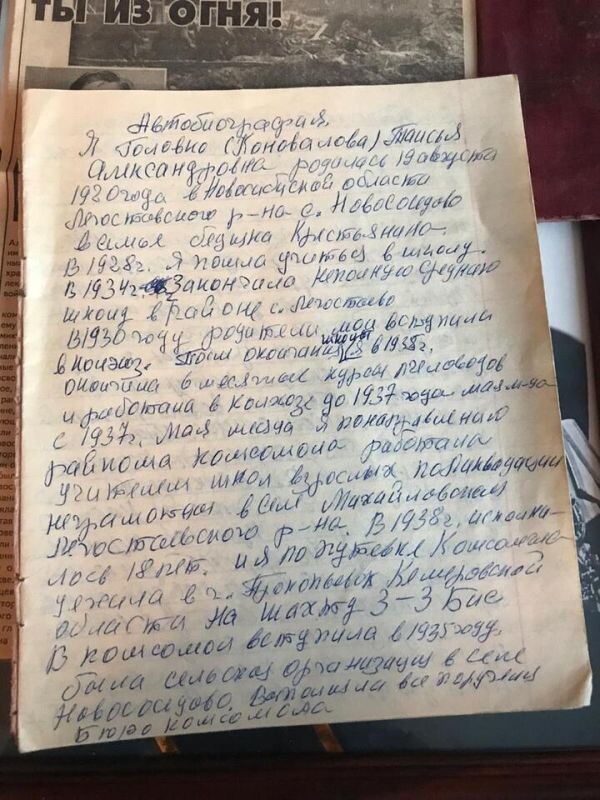 ТЫ ИЗ ОГНЯ!
Автобиография.
Я Головко (Коновалова) Таисья
Александровна родилась 19 августа
1920 года в Новосибирской области
Легостаевского р-на с. Новососидово
в семье бедняка Крестьянина.
В 1928г. Я пошла учиться в школу.
В 1934г. Закончила неполную среднюю
школу в районе с. Легостаево
В 1930 году родители мои вступили
в колхоз. После окончания школы я в 1938г.
окончила 6 месячные курсы пчеловодов
и работала в колхозе до 1937 года. мая м-ца
с 1937г. Мая месяца я по направлению
райкома комсомола работала
учителем школ взрослых по ликвидации
неграмотных в селе Михайловском
Легостаевского р-на. В 1938г. исполни-
лось 18 лет. и я по путевке Комсомола
уехала в г. Прокопьевск Кемеровской
области на шахту 3-3 Бис
В комсомол вступила в 1935 году.
была сельская организация в селе
Новососидово. Выполняла все поручения
Бюро комсомола